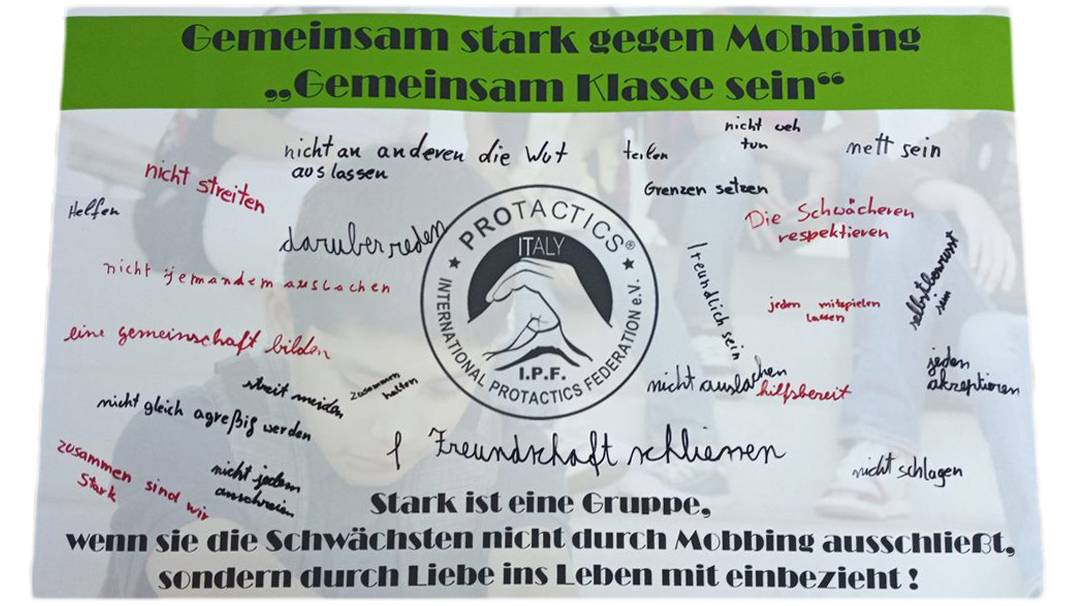 Gemeinsam stark gegen Mobbing
„Gemeinsam Klasse sein“
nicht an anderen die Wut
aus lassen
teilen
nicht weh
tun
nett sein
nicht streiten
Grenzen setzen
Helfen
Die Schwächeren
respektieren
daruber reden
PROTACTICS®
ITALY
INTERNATIONAL PROTACTICS FEDERATION e.V.
I.P.F.
freundlich sein
selbstbewusst
sein
nicht jemandem auslachen
jeden mitspielen
lassen
eine gemeinschaft bilden
streit meiden
zusammen
halten
nicht auslachen
hilfsbereit
jeden
akzeptieren
nicht gleich agreßig werden
Freundschaft schliessen
zusammen sind wir
Stark
nicht jeden
anschreien
nicht schlagen
Stark ist eine Gruppe,
wenn sie die Schwächsten nicht durch Mobbing ausschließt,
sondern durch Liebe ins Leben mit einbezieht !